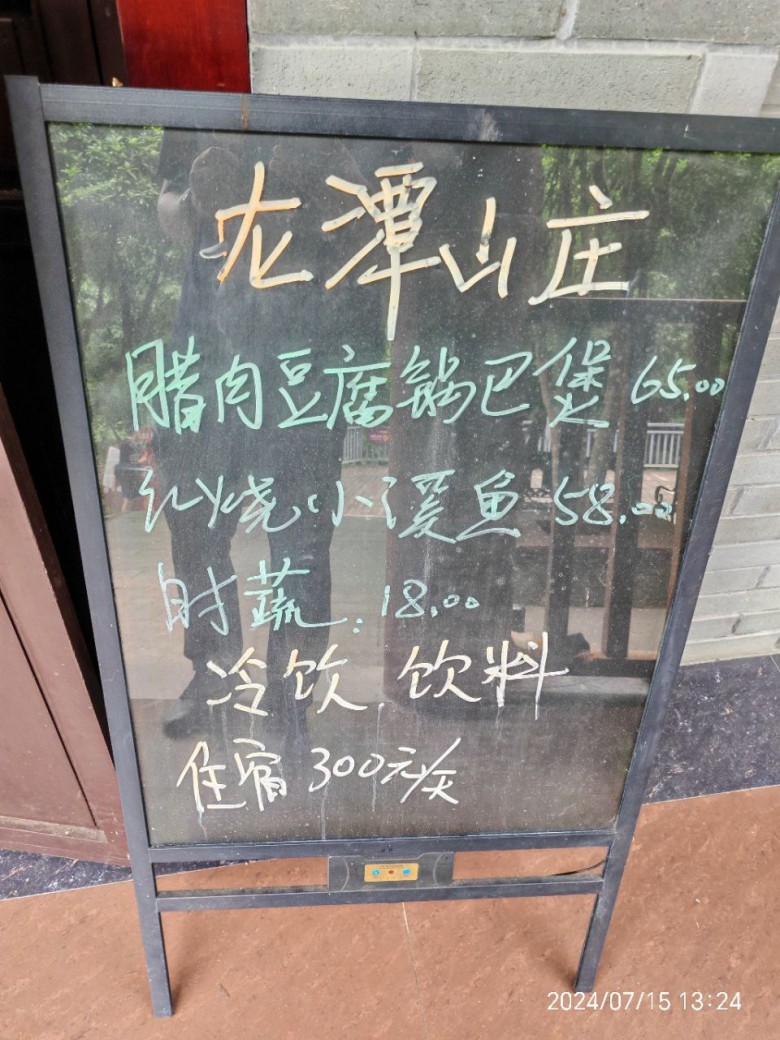 龙潭山庄
腊肉豆腐锅巴煲 65.00
红烧小溪鱼 58.00
时蔬: 18.00
冷饮. 饮料
住宿 300元/天
2024/07/15 13:24